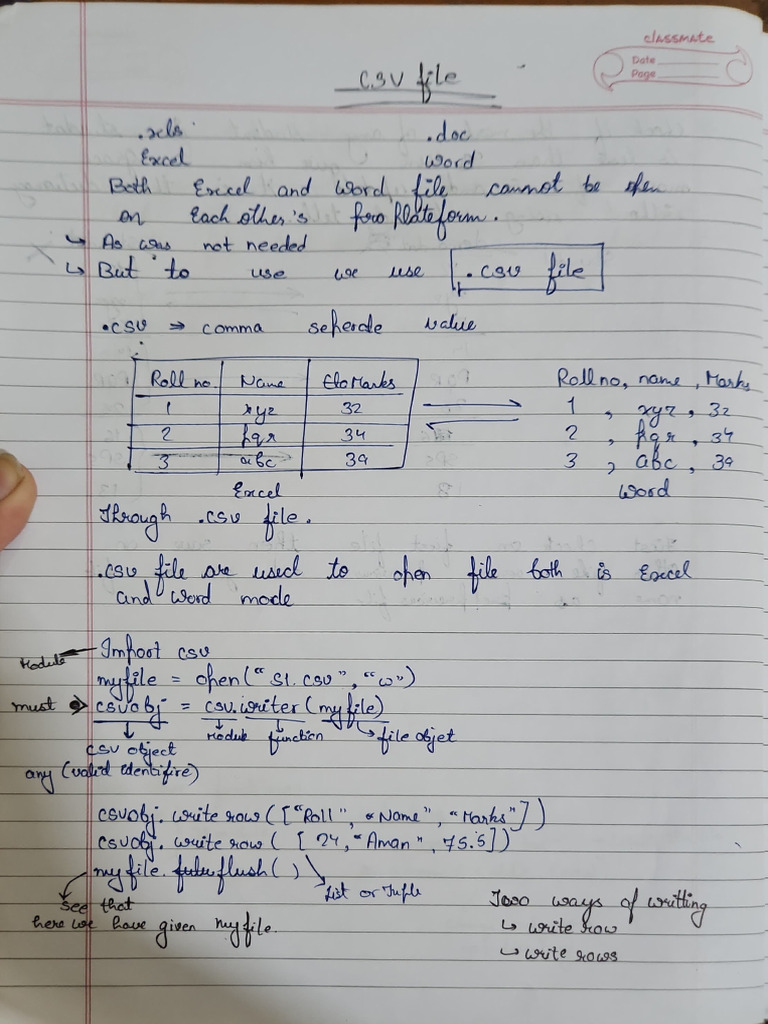 classmate
Date
Page
CSV file
.xcls .doc
Excel Word
Both Excel and Word file cannot be open
on Each other's Plateform.
↳ As was not needed
↳ But to use we use .csv file
.csv ⇒ comma seherade value
Roll no. Name Marks
1 xyz 32
2 pqr 34
3 abc 39
Roll no, name, Marks
1 , xyz, 32
2 , pqr, 34
3 , abc, 39
Excel Word
Through .csv file.
.csv file are used to open file both is Excel
and Word mode
Module ← Import csv
myfile = open("S1.csv", "w")
must → csvobj = csv.writer(myfile)
csv object Module function file objet
any (valid identifire)
csvobj. write row (["Roll", "Name", "Marks"])
csvobj. write row ( [ 24, "Aman", 75.5])
myfile. flush ( )
List or Tuple
see that
here we have given myfile.
Two ways of writting
↳ write row
↳ write rows